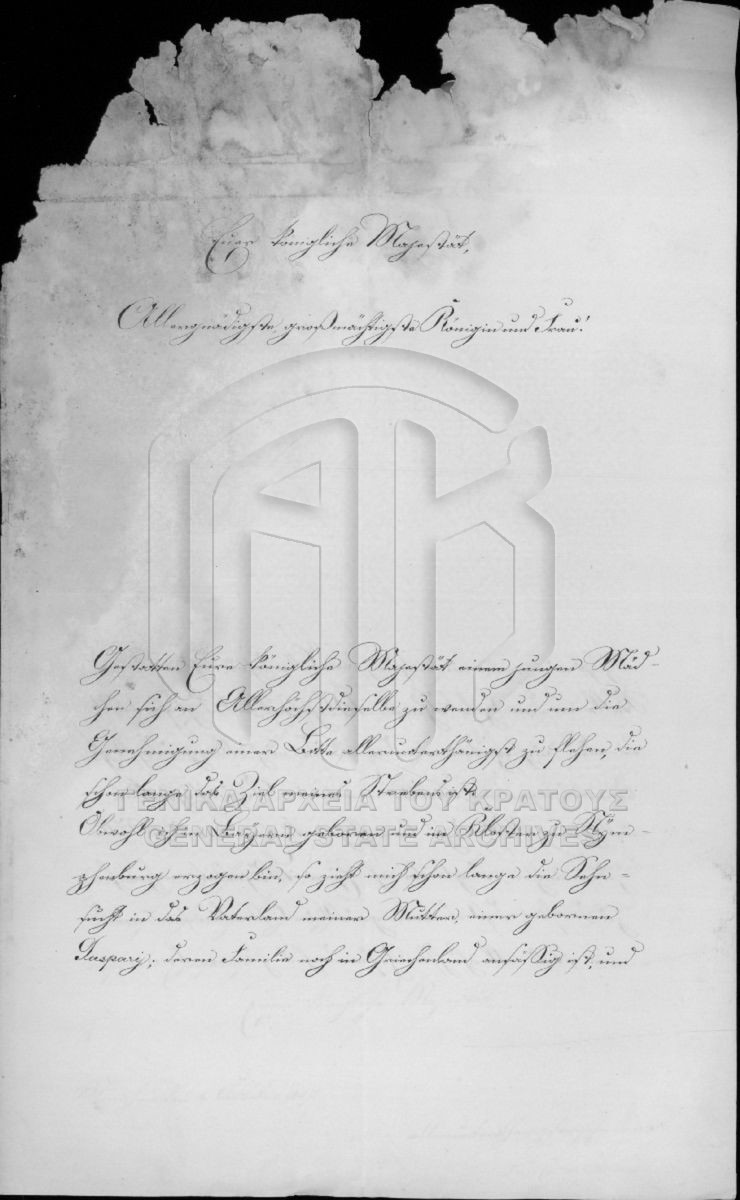 Euer königliche Majestät,
Allergnädigste, großmächtigste Königin und Frau!
Gestatten Eure königliche Majestät einem jungen Mäd-
chen sich an Allerhöchstdieselbe zu wenden und um die
Genehmigung einer Bitte allerunterthänigst zu flehen, die
schon lange das Ziel meines Strebens ist.
ΓΕΝΙΚΑ ΑΡΧΕΙΑ ΤΟΥ ΚΡΑΤΟΥΣ
Obwohl ich in Bayern geboren und im Kloster zu Nym-
GENERAL STATE ARCHIVES
phenburg erzogen bin, so zieht mich schon lange die Sehn-
sucht in das Vaterland meiner Mutter, einer gebornen
; deren Familie noch in Griechenland ansässig ist, und